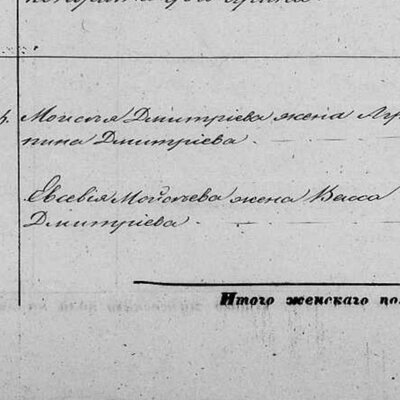 Моисея Дмитріева жена Агр
пина Дмитріева.
Евсевія Мойсеева жена Васса
Дмитріева
Итого женскаго пол